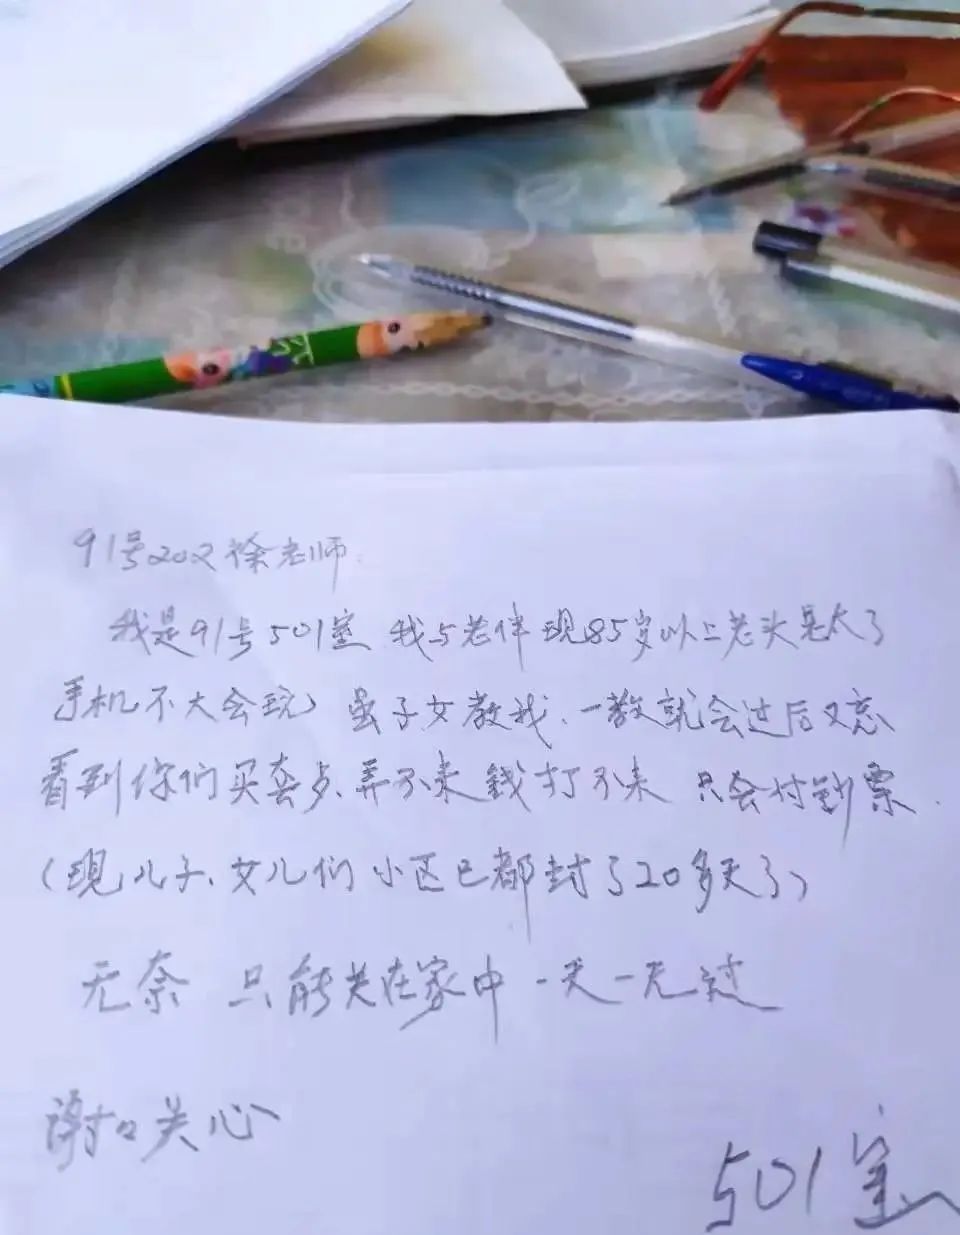 91号202徐老师.
我是91号501室 我与老伴 现85岁以上 老头是大了
手机不大会玩, 虽子女教我、一教就会过后又忘
看到你们买卖点、弄不来 錢打不来 只会付钞票.
(现儿子、女儿们 小区已都封了20多天了)
无奈 只能关在家中 一天一天过
谢々关心
501室